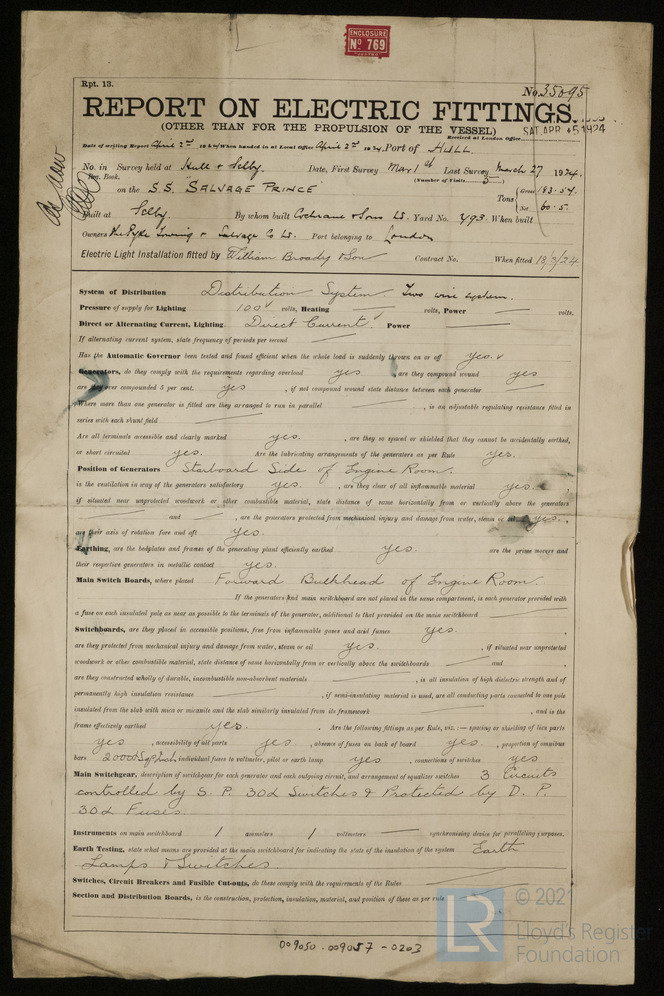 ENCLOSURE
No. 769
Rpt. 13.
No. 35095
REPORT ON ELECTRIC FITTINGS.
(OTHER THAN FOR THE PROPULSION OF THE VESSEL)
Received at London Office SAT. APR. 5 1924
Date of writing Report April 2nd 1924 When handed in at Local Office April 2nd 1924 Port of HULL.
No. in Survey held at Hull & Selby. Date, First Survey Mar 1st Last Survey March 27 1924
Reg. Book. (Number of Visits 3)
on the S.S. "SALVAGE PRINCE" Tons { Gross 183.54
Net 60.5.
Built at Selby. By whom built Cochrane & Sons Ld. Yard No. 793. When built
Owners The Pyke Towing & Salvage Co Ld. Port belonging to London
Electric Light Installation fitted by William Broady & Son Contract No. When fitted 18/3/24
System of Distribution Distribution System. Two wire system.
Pressure of supply for Lighting 100 volts, Heating volts, Power volts.
Direct or Alternating Current, Lighting Direct Current. Power
If alternating current, state frequency of periods per second
Has the Automatic Governor been tested and found efficient when the whole load is suddenly thrown on or off yes.
Generators, do they comply with the requirements regarding overload yes , are they compound wound yes
are they over compounded 5 per cent. yes , if not compound wound state distance between each generator
Where more than one generator is fitted are they arranged to run in parallel , is an adjustable regulating resistance fitted in
series with each shunt field
Are all terminals accessible and clearly marked yes. , are they so spaced or shielded that they cannot be accidentally earthed,
or short circuited yes. Are the lubricating arrangements of the generators as per Rule yes.
Position of Generators Starboard Side of Engine Room.
is the ventilation in way of the generators satisfactory yes. , are they clear of all inflammable material yes.
if situated near unprotected woodwork or other combustible material, state distance of same horizontally from or vertically above the generators
and , are the generators protected from mechanical injury and damage from water, steam or oil yes. ,
are their axis of rotation fore and aft yes.
Earthing, are the bedplates and frames of the generating plant efficiently earthed yes. are the prime movers and
their respective generators in metallic contact yes.
Main Switch Boards, where placed Forward Bulkhead of Engine Room.
If the generators and main switchboard are not placed in the same compartment, is each generator provided with
a fuse on each insulated pole as near as possible to the terminals of the generator, additional to that provided on the main switchboard
Switchboards, are they placed in accessible positions, free from inflammable gases and acid fumes yes. ,
are they protected from mechanical injury and damage from water, steam or oil yes. , if situated near unprotected
woodwork or other combustible material, state distance of same horizontally from or vertically above the switchboards and ,
are they constructed wholly of durable, incombustible non-absorbent materials , is all insulation of high dielectric strength and of
permanently high insulation resistance , if semi-insulating material is used, are all conducting parts connected to one pole
insulated from the slab with mica or micanite and the slab similarly insulated from its framework , and is the
frame effectively earthed yes. . Are the following fittings as per Rule, viz.:— spacing or shielding of live parts
yes , accessibility of all parts yes. , absence of fuses on back of board yes. , proportion of omnibus
bars 2000 Sq Inch, individual fuses to voltmeter, pilot or earth lamp yes , connections of switches yes
Main Switchgear, description of switchgear for each generator and each outgoing circuit, and arrangement of equalizer switches 3 Circuits
controlled by S. P. 30a Switches & Protected by D. P.
30a Fuses.
Instruments on main switchboard 1 ammeters 1 voltmeters synchronising device for paralleling purposes.
Earth Testing, state what means are provided at the main switchboard for indicating the state of the insulation of the system Earth
Lamps & Switches.
Switches, Circuit Breakers and Fusible Cut-outs, do these comply with the requirements of the Rules
Section and Distribution Boards, is the construction, protection, insulation, material, and position of these as per rule
009050-009057-0203
LR
© 2021
Lloyd's Register
Foundation